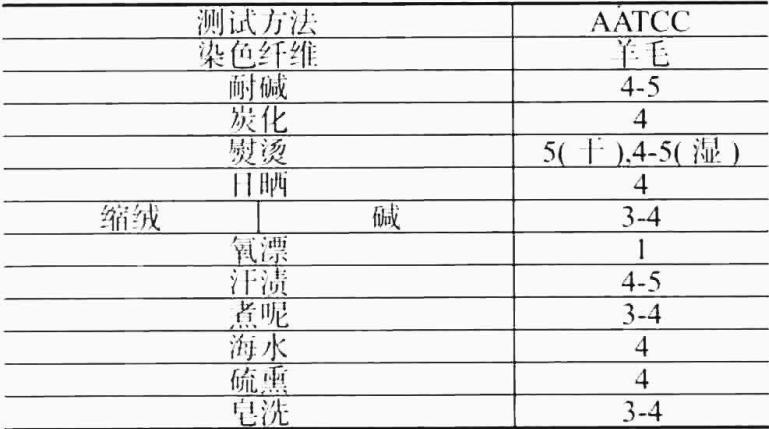 测试方法 AATCC
染色纤维 羊毛
耐碱 4-5
炭化 4
熨烫 5(干),4-5(湿)
日晒 4
缩绒 碱 3-4
氧漂 1
汗渍 4-5
煮呢 3-4
海水 4
硫熏 4
皂洗 3-4